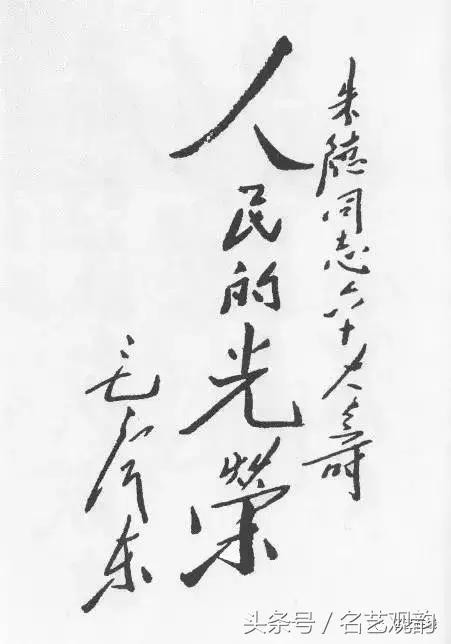 朱德同志六十大寿
人民的光榮
毛泽东
头条号 / 名艺观韵